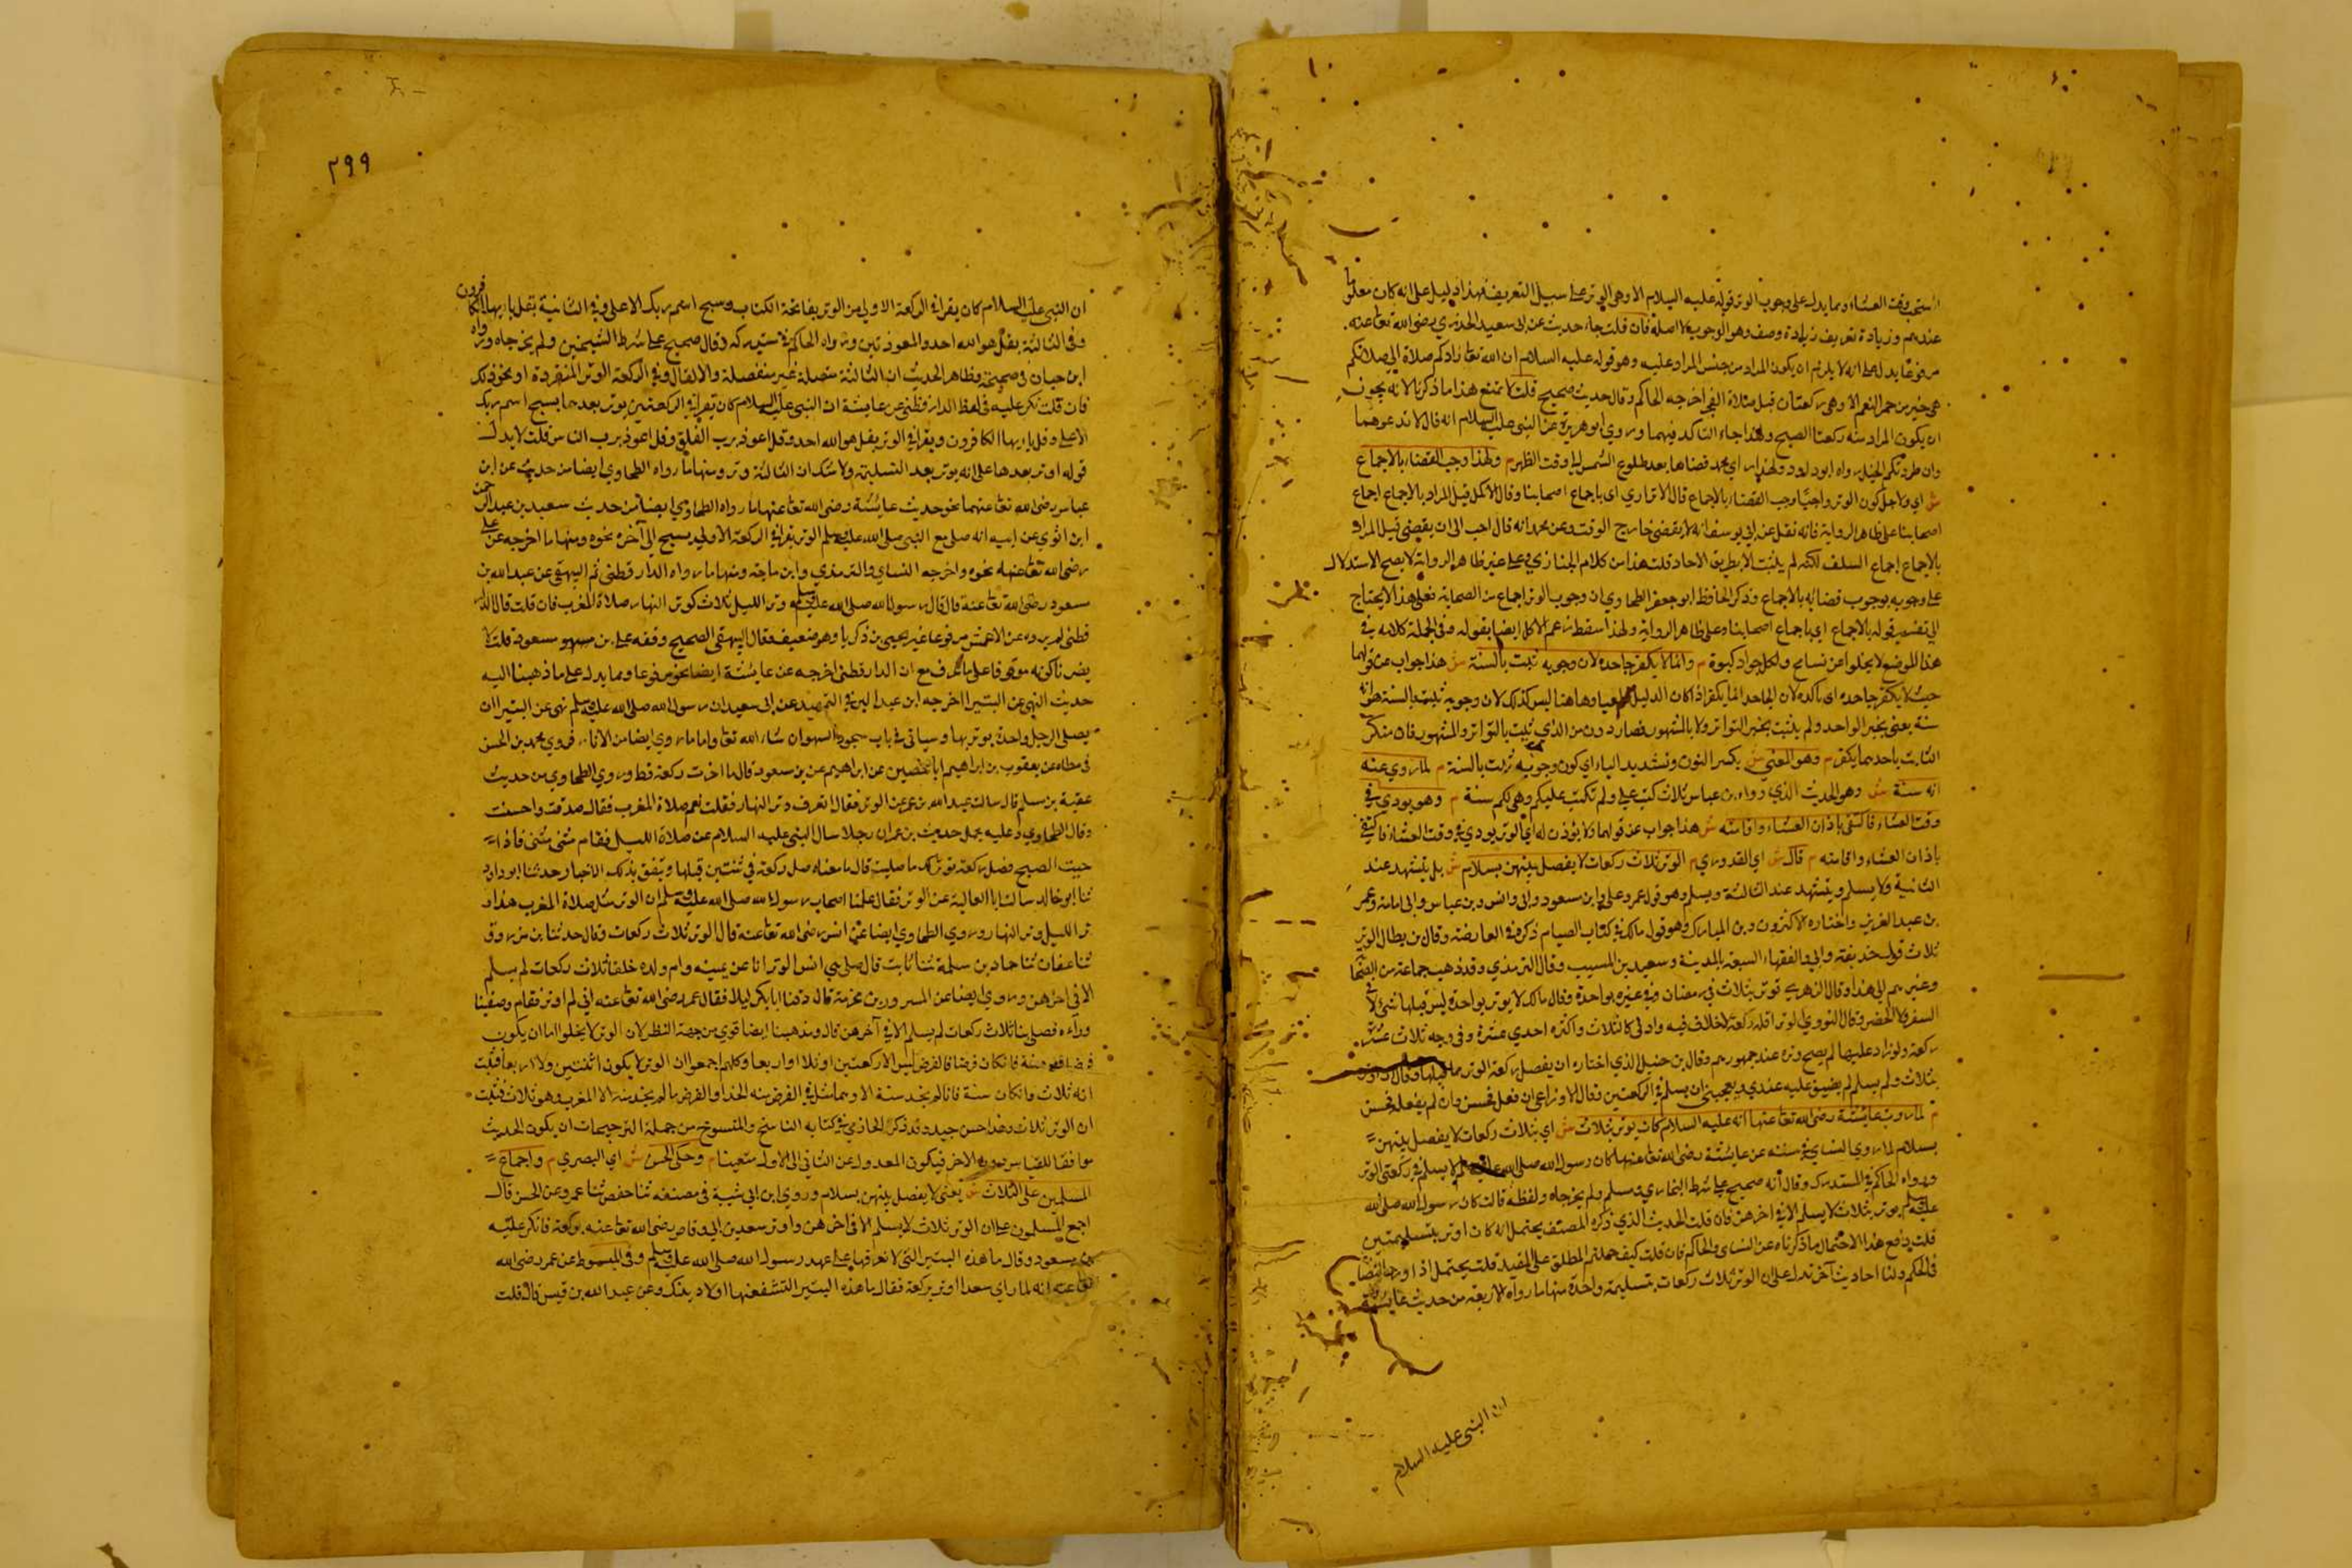 استحب وقت العشاء ومما يدل على وجوب الوتر قوله عليه السلام الا وهي الوتر على سبيل التعريف فهذا دليل على انه كان معلوما
عندهم وزيادة تعريف زيادة وصف وهو الوجوب لا اصله فان قلت جاء حديث عن ابي سعيد الخدري رضي الله تعا عنه
مرفوعا يدل على انه لا يلزم ان يكون المراد من جنس المزاد عليه وهو قوله عليه السلام ان الله تعا زادكم صلاة الي صلاتكم
هي خير من حمر النعم الا وهي ركعتان قبل صلاة الفجر اخرجه الحاكم وقال حديث صحيح قلت لا تمنع هذا ما ذكرنا لانه يجوز
ان يكون المراد منه ركعتا الصبح ولهذا جاء التاكد فيهما وروي ابو هريرة عن النبي عليه السلام انه قال لا تدعوهما
وان طردتكم الخيل رواه ابو داود ولهذا اي يجد قضاها بعد طلوع الشمس الي وقت الظهر م ولهذا وجب القضاء بالاجماع
ش اي ولاجل كون الوتر واجبا وجب القضاء بالاجماع قال الاترازي اي باجماع اصحابنا وقال الاكمل قيل المراد بالاجماع اجماع
اصحابنا على ظاهر الرواية فانه نقل عن ابي يوسف انه لا يقضي خارج الوقت وعن محمد انه قال احب الي ان يقضي قيل المراد
بالاجماع اجماع السلف لكنه لم يثبت الا بطريق الاحاد قلت هذا من كلام الخبازي وعلى غير ظاهر الرواية لا يصح الاستدلال
على وجوبه بوجوب قضائه بالاجماع وذكر الحافظ ابو جعفر الطحاوي ان وجوب الوتر اجماع من الصحابة فعلى هذا لا يحتاج
الي تفسير قوله بالاجماع اي باجماع اصحابنا وعلى ظاهر الرواية ولهذا سقط زعم الاكمل ايضا بقوله وفي الجملة كلامه في
هذا الموضع لا يخلو عن تسامح ولكل جواد كبوة م وانما لا يكفر جاحده لان وجوبه ثبت بالسنة ش هذا جواب عن قولهما
حيث لا يكفر جاحده اي تاكده لان الجاحد انما يكفر اذا كان الدليل قطعيا وهاهنا ليس كذلك لان وجوبه ثبت بالسنة هو انه
سنة يعني بخبر الواحد ولم يثبت بخبر التواتر ولا بالمشهور فصار دون من الذي ثبت بالتواتر والمشهور فان منكر
الثابت باحدهما يكفر م وهو المعني ش بكسر النون وتشديد الياء اي كون وجوبه ثبت بالسنة م لما روي عنه
انه سنة ش وهو الحديث الذي رواه بن عباس ثلاث كتب علي ولم تكتب عليكم وهي لكم سنة م وهو يودي في
وقت العشاء فاكتفي باذان العشاء واقامته ش هذا جواب عن قولهما ولا يؤذن له اي الوتر يودي في وقت العشاء فاكتفي
باذان العشاء واقامته م قال ش اي القدوري م الوتر ثلاث ركعات لا يفصل بينهن بسلام ش بل يتشهد عند
الثانية ولا يسلم ويتشهد عند الثالثة ويسلم وهو قول عمر وعلي وابن مسعود وابي وانس وبن عباس وابي امامة وعمر
بن عبد العزيز واختاره الاكثرون وبن المبارك وهو قول مالك في كتاب الصيام ذكره في العارضة وقال بن بطال الوتر
ثلاث قول حذيفة وابي والفقهاء السبعة بالمدينة وسعيد بن المسيب وقال الترمذي وقد ذهب جماعة من الصحا
وغيرهم الي هذا وقال الزهري توتر بثلاث في رمضان وفي غيره بواحدة وقال مالك لا يوتر بواحدة ليس قبلها شئ لا في
السفر ولا الحضر وقال النووي الوتر اقله ركعة لا خلاف فيه وادنى كماله ثلاث واكثره احدي عشرة وفي وجه ثلاث عشرة
ركعة ولو زاد عليها لم يصح وتره عند جمهورهم وقال بن حنبل الذي اختاره ان يفصل ركعة الوتر مما قبلها وقال ان اوتر
بثلاث ولم يسلم لم يضيق عليه عندي ويعجبني ان يسلم في الركعتين وقال الاوزاعي ان فعل فحسن وان لم يفعل فحسن
م لما روت عايشة رضي الله تعا عنها انه عليه السلام كان يوتر بثلاث ش اي بثلاث ركعات لا يفصل بينهن
بسلام لما روي النساي في سننه عن عايشة رضي الله تعا عنها كان رسول الله صلى الله عليه وسلم لا يسلم في ركعتي الوتر
ورواه الحاكم في المستدرك وقال انه صحيح على شرط البخاري ومسلم ولم يخرجاه ولفظه قالت كان رسول الله صلى الله
عليه وسلم يوتر بثلاث لا يسلم الا في اخرهن فان قلت الحديث الذي ذكره المصنف يحتمل انه كان اوتر بتسليمتين
قلت يدفع هذا الاحتمال ما ذكرناه عن النساي والحاكم فان قلت كيف حملتم المطلق على المقيد قلت يحتمل اذا اوجبا القضا
في الحكم ولنا احاديث اخر تدل على ان الوتر ثلاث ركعات بتسليمة واحدة منها ما رواه الاربعة من حديث عايشة
ان النبي عليه السلام
٢٩٩
ان النبي عليه السلام كان يقرا في الركعة الاولي من الوتر بفاتحة الكتاب وسبح اسم ربك الاعلى وفي الثانية بقل يا ايها الكافرون
وفي الثالثة بقل هو الله احد والمعوذتين ورواه الحاكم في مستدركه وقال صحيح على شرط الشيخين ولم يخرجاه ورواه
ابن حبان في صحيحه وظاهر الحديث ان الثالثة متصلة غير منفصلة والا لقال وفي الركعة الوتر المنفردة او نحو ذلك
فان قلت يكر عليه في لفظ الدارقطني عن عايشة ان النبي عليه السلام كان يقرا في الركعتين يوتر بعدهما بسبح اسم ربك
الاعلى وقل يا ايها الكافرون ويقرا في الوتر بقل هو الله احد وقل اعوذ برب الفلق وقل اعوذ برب الناس قلت لا يدل
قوله اوتر بعدها على انه يوتر بعد التسليمة ولا شك ان الثالثة وتر ومنها ما رواه الطحاوي ايضا من حديث عن ابن
عباس رضي الله تعا عنهما نحو حديث عايشة رضي الله تعا عنها ما رواه الطحاوي ايضا من حديث سعيد بن عبد الرحمن
ابن ابزي عن ابيه انه صلى مع النبي صلى الله عليه وسلم الوتر يقرا في الركعة الاولي بسبح الى آخره نحوه ومنها ما اخرجه عن علي
رضي الله تعا عنه نحوه واخرجه النساي والترمذي وابن ماجة ومنها ما رواه الدارقطني ثم البيهقي عن عبد الله بن
مسعود رضي الله تعا عنه قال قال رسول الله صلى الله عليه وسلم وتر الليل ثلاث كوتر النهار صلاة المغرب فان قلت قال الدار
قطني لم يروه عن الاعمش مرفوعا غير يحيي بن زكريا وهو ضعيف فقال البيهقي الصحيح وقفه على بن مسعود قلت لا
يضرنا كونه موقوفا على ما عرف مع ان الدارقطني اخرجه عن عايشة ايضا نحو مرفوعا ومما يدل على ما ذهبنا اليه
حديث النهي عن البتيرا اخرجه ابن عبد البر في التمهيد عن ابي سعيد ان رسول الله صلى الله عليه وسلم نهى عن البتيرا ان
يصلي الرجل واحدة يوتر بها وسياتي في باب سجود السهو ان شاء الله تعا واما ما روي ايضا من الاثار فروي محمد بن الحسن
في موطاه عن يعقوب بن ابراهيم ابنا حصين عن ابراهيم عن بن مسعود قال ما اجزت ركعة قط وروي الطحاوي من حديث
عقبة بن مسلم قال سالت عبد الله بن عمر عن الوتر فقال اتعرف وتر النهار فقلت نعم صلاة المغرب فقال صدقت واحسنت
وقال الطحاوي وعليه يحمل حديث بن عمر ان رجلا سال النبي عليه السلام عن صلاة الليل فقام مثنى مثنى فاذا
خشيت الصبح فصل ركعة توتر لك ما صليت قال معناه صل ركعة في ثنتين قبلها وتتفق بذلك الاخبار وحدثنا ابو داود
ثنا ابو خالد سالت ابا العالية عن الوتر فقال علمنا اصحاب رسول الله صلى الله عليه وسلم ان الوتر مثل صلاة المغرب هذا و
تر الليل وتر النهار وروي الطحاوي ايضا عن انس رضي الله تعا عنه قال الوتر ثلاث ركعات وقال حدثنا بن مرزوق
ثنا عفان ثنا حماد بن سلمة ثنا ثابت قال صلى بي انس الوتر انا عن يمينه وام ولده خلفنا ثلاث ركعات لم يسلم
الا في اخرهن وروي ايضا عن المسور بن مخرمة قال دفنا ابا بكر ليلا فقال عمر رضي الله تعا عنه اني لم اوتر فقام وصففنا
وراءه فصلى بنا ثلاث ركعات لم يسلم الا في آخرهن قال ومذهبنا ايضا قوي من جهة النظر لان الوتر لا يخلوا اما ان يكون
فرضا او سنة فان كان فرضا فالفرض ليس الا ركعتين او ثلاثا او اربعا وكلهم اجمعوا ان الوتر لا يكون اثنتين ولا اربعا فثبت
انه ثلاث وان كان سنة فانا لم نجد سنة الا وما مثل في الفرض منه اخذ والفرض ما لم نجد منه الا المغرب وهو ثلاث فثبت
ان الوتر ثلاث وهذا حسن جيد وقد ذكر الحازمي في كتابه الناسخ والمنسوخ من جملة الترجيحات ان يكون الحديث
موافقا للقياس دون الاخر فيكون العدول عن الثاني الى الاول متعينا م وحكى الحسن ش اي البصري م واجماع
المسلمين على الثلاث ش يعني لا يفصل بينهن بسلام وروي ابن ابي شيبة في مصنفه ثنا حفص ثنا عمرو عن الحسن قال
اجمع المسلمون على ان الوتر ثلاث لا يسلم الا في اخرهن واوتر سعد بن ابي وقاص رضي الله تعا عنه بركعة فانكر عليه
بن مسعود وقال ما هذه البتيرا التي لا نعرفها على عهد رسول الله صلى الله عليه وسلم وفي المبسوط عن عمر رضي الله
تعا عنه انه لما راي سعدا اوتر بركعة فقال ما هذه البتيرا لتشفعنها اولاد يبنك وعن عبد الله بن قيس قال قلت